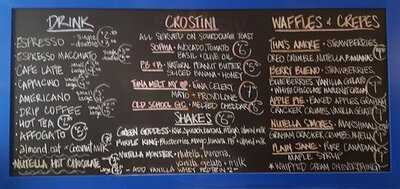 DRINK
ESPRESSO - single
- double
ESPRESSO MACCHIATO
CAFE LATTE small
large
CAPPUCINO small
large
AMERICANO small
large
DRIP COFFEE
HOT TEA
AFFOGATO
almond milk + coconut milk
NUTELLA HOT CHOCOLATE
CROSTINI
ALL SERVED ON SOURDOUGH TOAST
SOPHIA - AVOCADO, TOMATO
BASIL + OLIVE OIL
PB + B - NATURAL PEANUT BUTTER
SLICED BANANA + HONEY
TUNA MELT MY - TUNA, CELERY
MATO + PROVOLONE
OLD SCHOOL GC - MELTED CHEDDAR
SHAKES
GREEN GODDESS - almond milk
PURPLE KING - Blueberries, almond milk
NUTELLA MONSTER - Nutella, banana,
vanilla gelato + milk
- ADD VANILLA WHEY PROTEIN
WAFFLES + CREPES
THAT'S AMORE - STRAWBERRIES,
OREO CRUMBLE, NUTELLA, BANANAS
BERRY BUENO - STRAWBERRIES
BLUEBERRIES, VANILLA GELATO
WHITE CHOCOLATE
APPLE PIE - BAKED APPLES, GRAHAM
CRACKER CRUMBS, VANILLA GELATO
NUTELLA SMORES - MARSHMALLOW
GRAHAM CRACKER CRUMBS, NUTELLA
PLAIN JANE - PURE CANADIAN
MAPLE SYRUP
*WHIPPED CREAM ON EVERYTHING